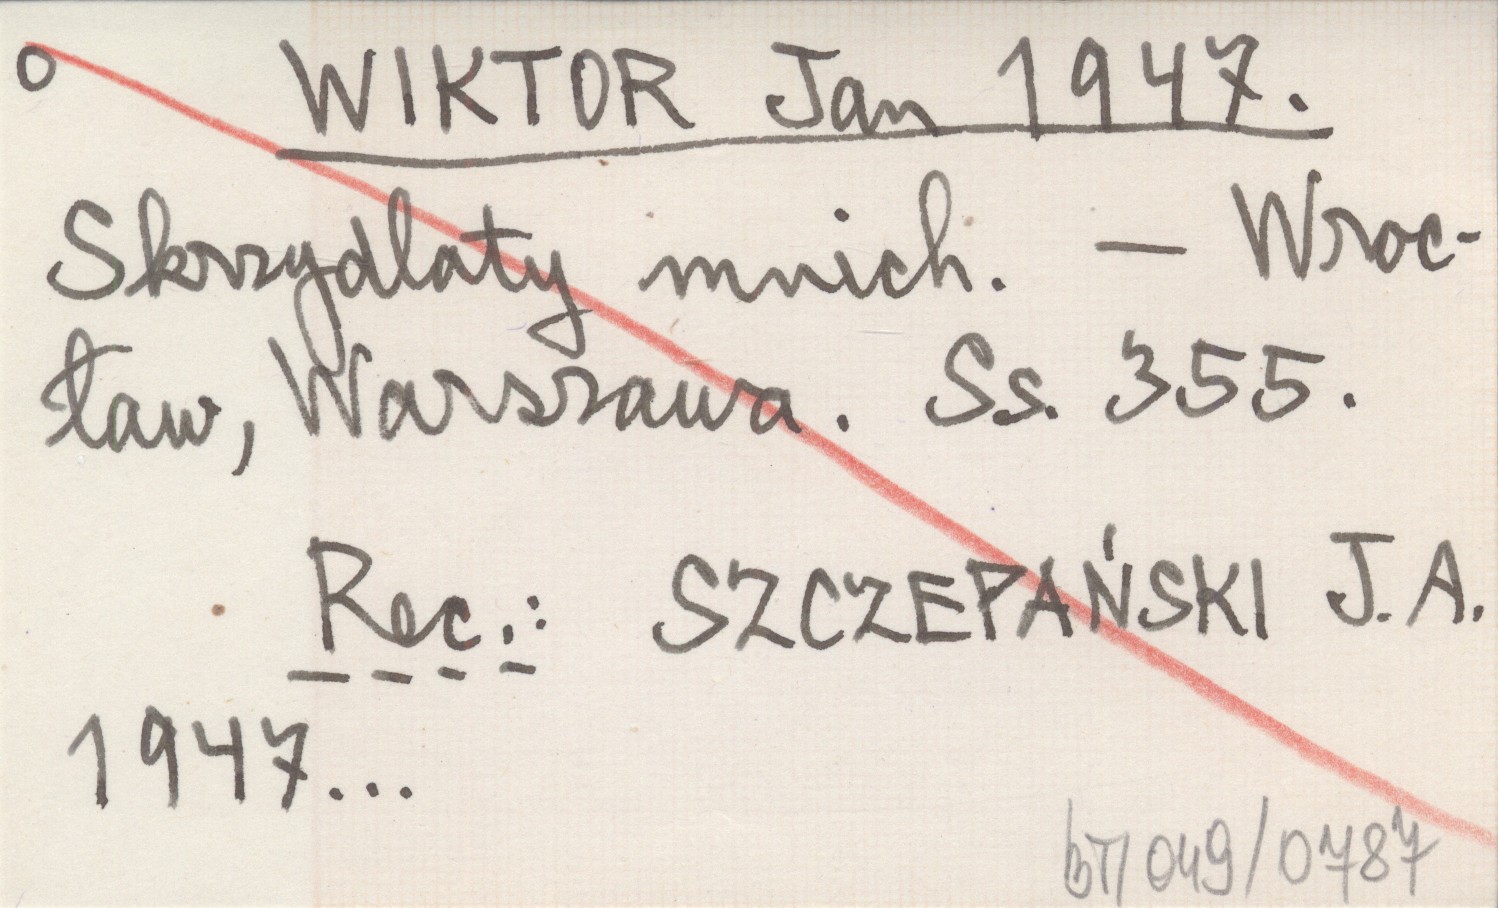 o WIKTOR Jan 1947.
Skrzydlaty mnich. — Wroc-
ław, Warszawa. Ss. 355.
Rec.: SZCZEPAŃSKI J.A.
1947...
bT/049/0787